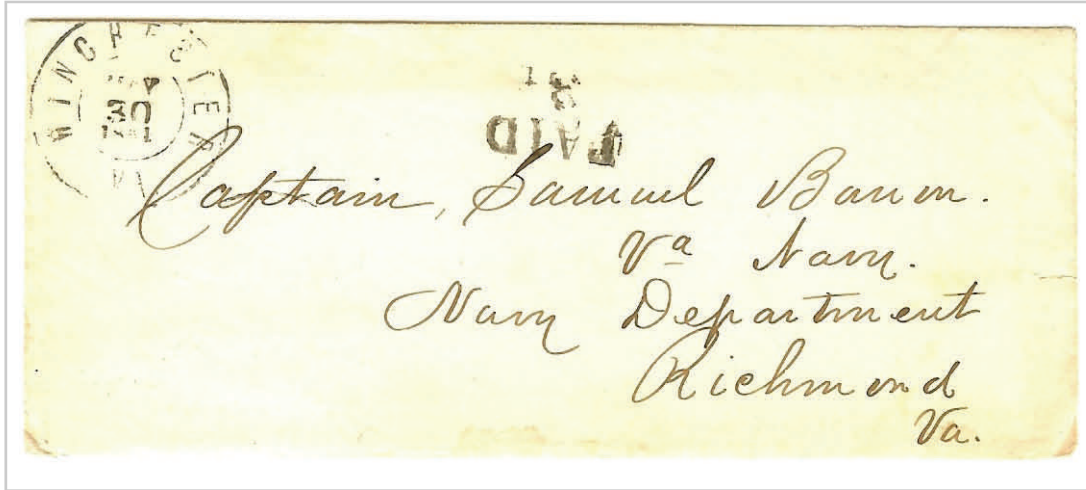 WINCHESTER
MAY
30
1861
VA
3
PAID
Captain, Samuel Barron.
Va Navy.
Navy Department
Richmond
Va.